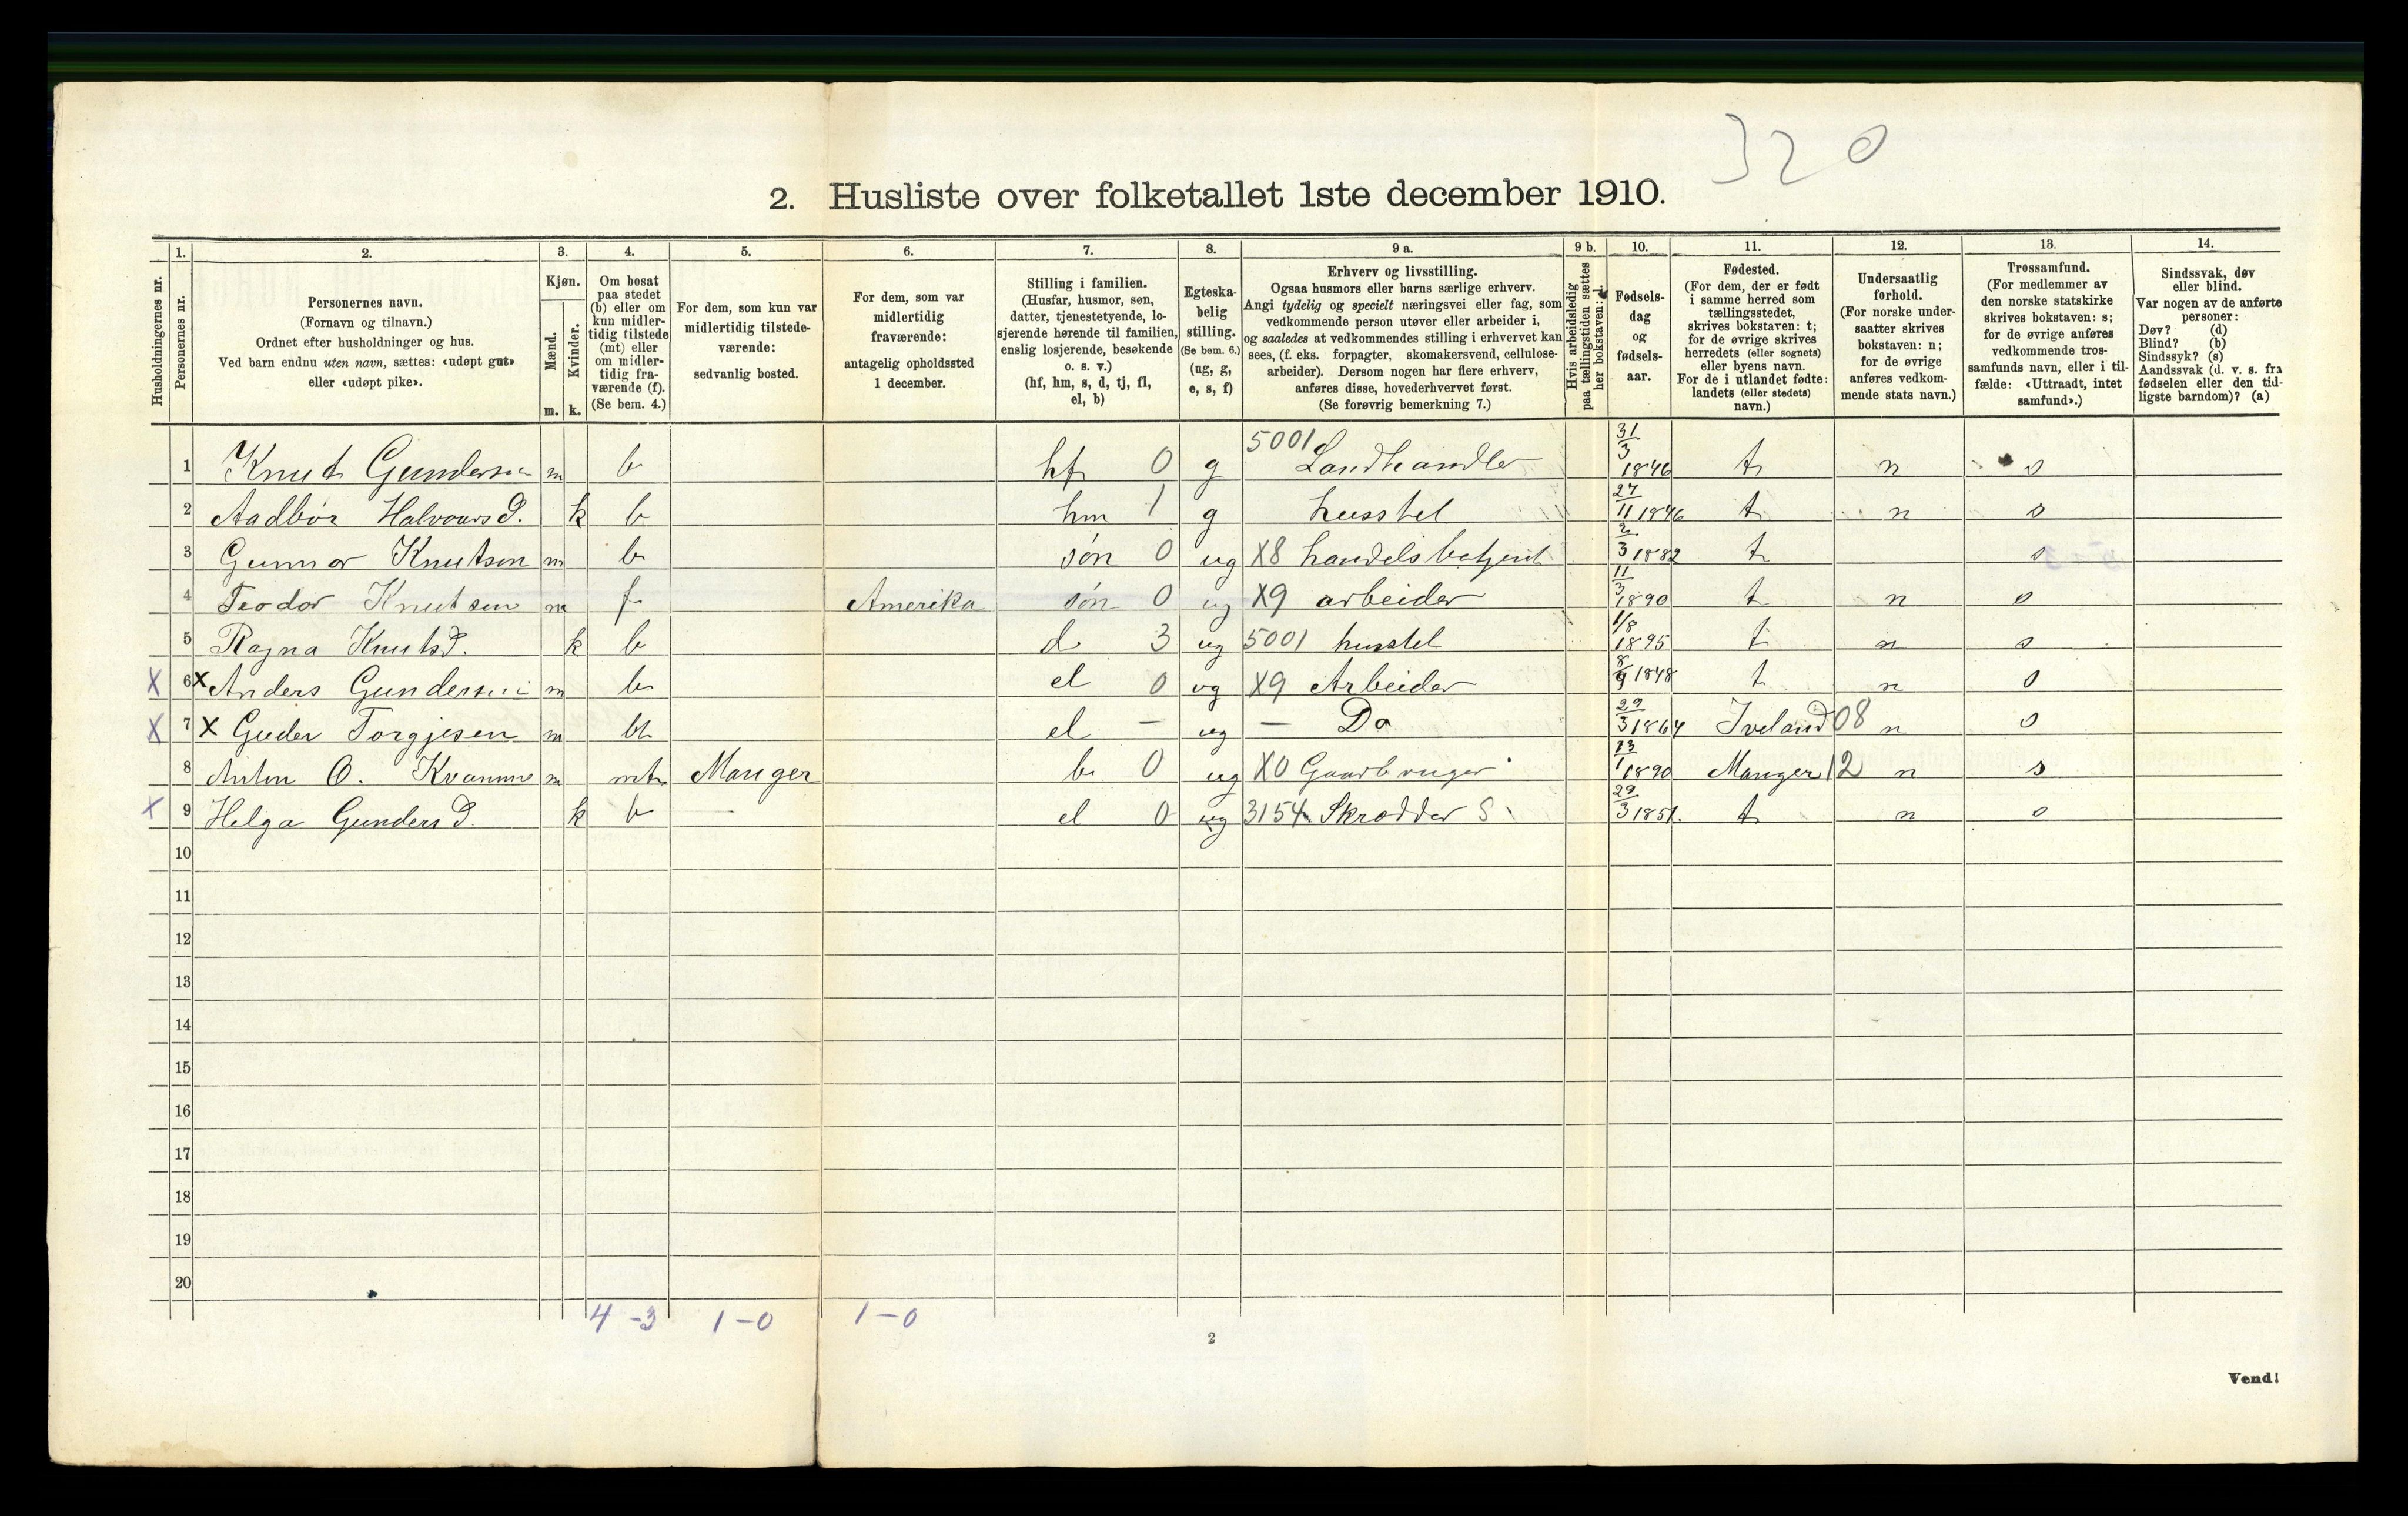 320
2. Husliste over folketallet 1ste december 1910.
Husholdningernes nr.
1.
Personernes nr.
2.
Personernes navn.
(Fornavn og tilnavn.)
Ordnet efter husholdninger og hus.
Ved barn endnu uten navn, sættes: «udøpt gut»
eller «udøpt pike».
3.
Kjøn.
Mænd.
Kvinder.
m. k.
4.
Om bosat
paa stedet
(b) eller om
kun midler-
tidig tilstede
(mt) eller
om midler-
tidig fra-
værende (f).
(Se bem. 4.)
5.
For dem, som kun var
midlertidig tilstede-
værende:
sedvanlig bosted.
6.
For dem, som var
midlertidig
fraværende:
antagelig opholdssted
1 december.
7.
Stilling i familien.
(Husfar, husmor, søn,
datter, tjenestetyende, lo-
sjerende hørende til familien,
enslig losjerende, besøkende
o. s. v.)
(hf, hm, s, d, tj, fl,
el, b)
8.
Egteska-
belig
stilling.
(Se bem. 6.)
(ug, g,
e, s, f)
9 a.
Erhverv og livsstilling.
Ogsaa husmors eller barns særlige erhverv.
Angi tydelig og specielt næringsvei eller fag, som
vedkommende person utøver eller arbeider i,
og saaledes at vedkommendes stilling i erhvervet kan
sees, (f. eks. forpagter, skomakersvend, cellulose-
arbeider). Dersom nogen har flere erhverv,
anføres disse, hovederhvervet først.
(Se forøvrig bemerkning 7.)
9 b.
Hvis arbeidsledig
paa tællingstiden sættes
her bokstaven: l.
10.
Fødsels-
dag
og
fødsels-
aar.
11.
Fødested.
(For dem, der er født
i samme herred som
tællingsstedet,
skrives bokstaven: t;
for de øvrige skrives
herredets (eller sognets)
eller byens navn.
For de i utlandet fødte:
landets (eller stedets)
navn.)
12.
Undersaatlig
forhold.
(For norske under-
saatter skrives
bokstaven: n;
for de øvrige
anføres vedkom-
mende stats navn.)
13.
Trossamfund.
(For medlemmer av
den norske statskirke
skrives bokstaven: s;
for de øvrige anføres
vedkommende tros-
samfunds navn, eller i til-
fælde: «Uttraadt, intet
samfund».)
14.
Sindssvak, døv
eller blind.
Var nogen av de anførte
personer:
Døv? (d)
Blind? (b)
Sindssyk? (s)
Aandssvak (d. v. s. fra
fødselen eller den tid-
ligste barndom)? (a)
1 Knut Gundersen m b hf 0 g 5001 Landhandler 31/3 1846 t n s
2 Aadbør Halvoars D. k b hm 1 g husstel 27/11 1846 t n s
3 Gunnar Knutson m b søn 0 ug X8 handelsbetjent 2/3 1882 t s
4 Teodor Knutsen m f Amerika søn 0 ug X9 arbeider 11/3 1890 t n s
5 Ragna KnutsD. k b d 3 ug 5001 husstel 1/8 1895 t n s
X 6 X Anders Gundersen m b el 0 ug X9 Arbeider 8/9 1848 t n s
X 7 X Guder Torgjesen m bt el – ug – Do 29/3 1864 Iveland 08 n s
8 Anton O. Kvamme m mt Manger b 0 ug X0 Gaarbruger 23/1 1890 Manger 12 n s
X 9 Helga Gunders D. k b – el 0 ug 3154 Skrædder S 29/3 1851. t n s
10
11
12
13
14
15
16
17
18
19
20
4 - 3 1 - 0 1 - 0
2
Vend!